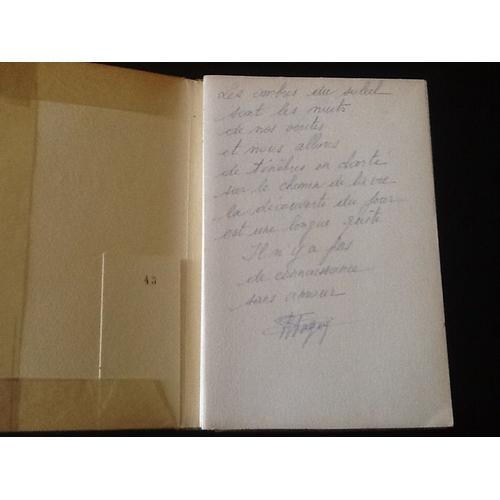 Les ombres du soleil
sont les nuits
de nos
et nous allons
de ténèbres en clarté
sur le chemin de la vie
la découverte du jour
est une longue quête
Il n'y a pas
de connaissance
sans amour
43